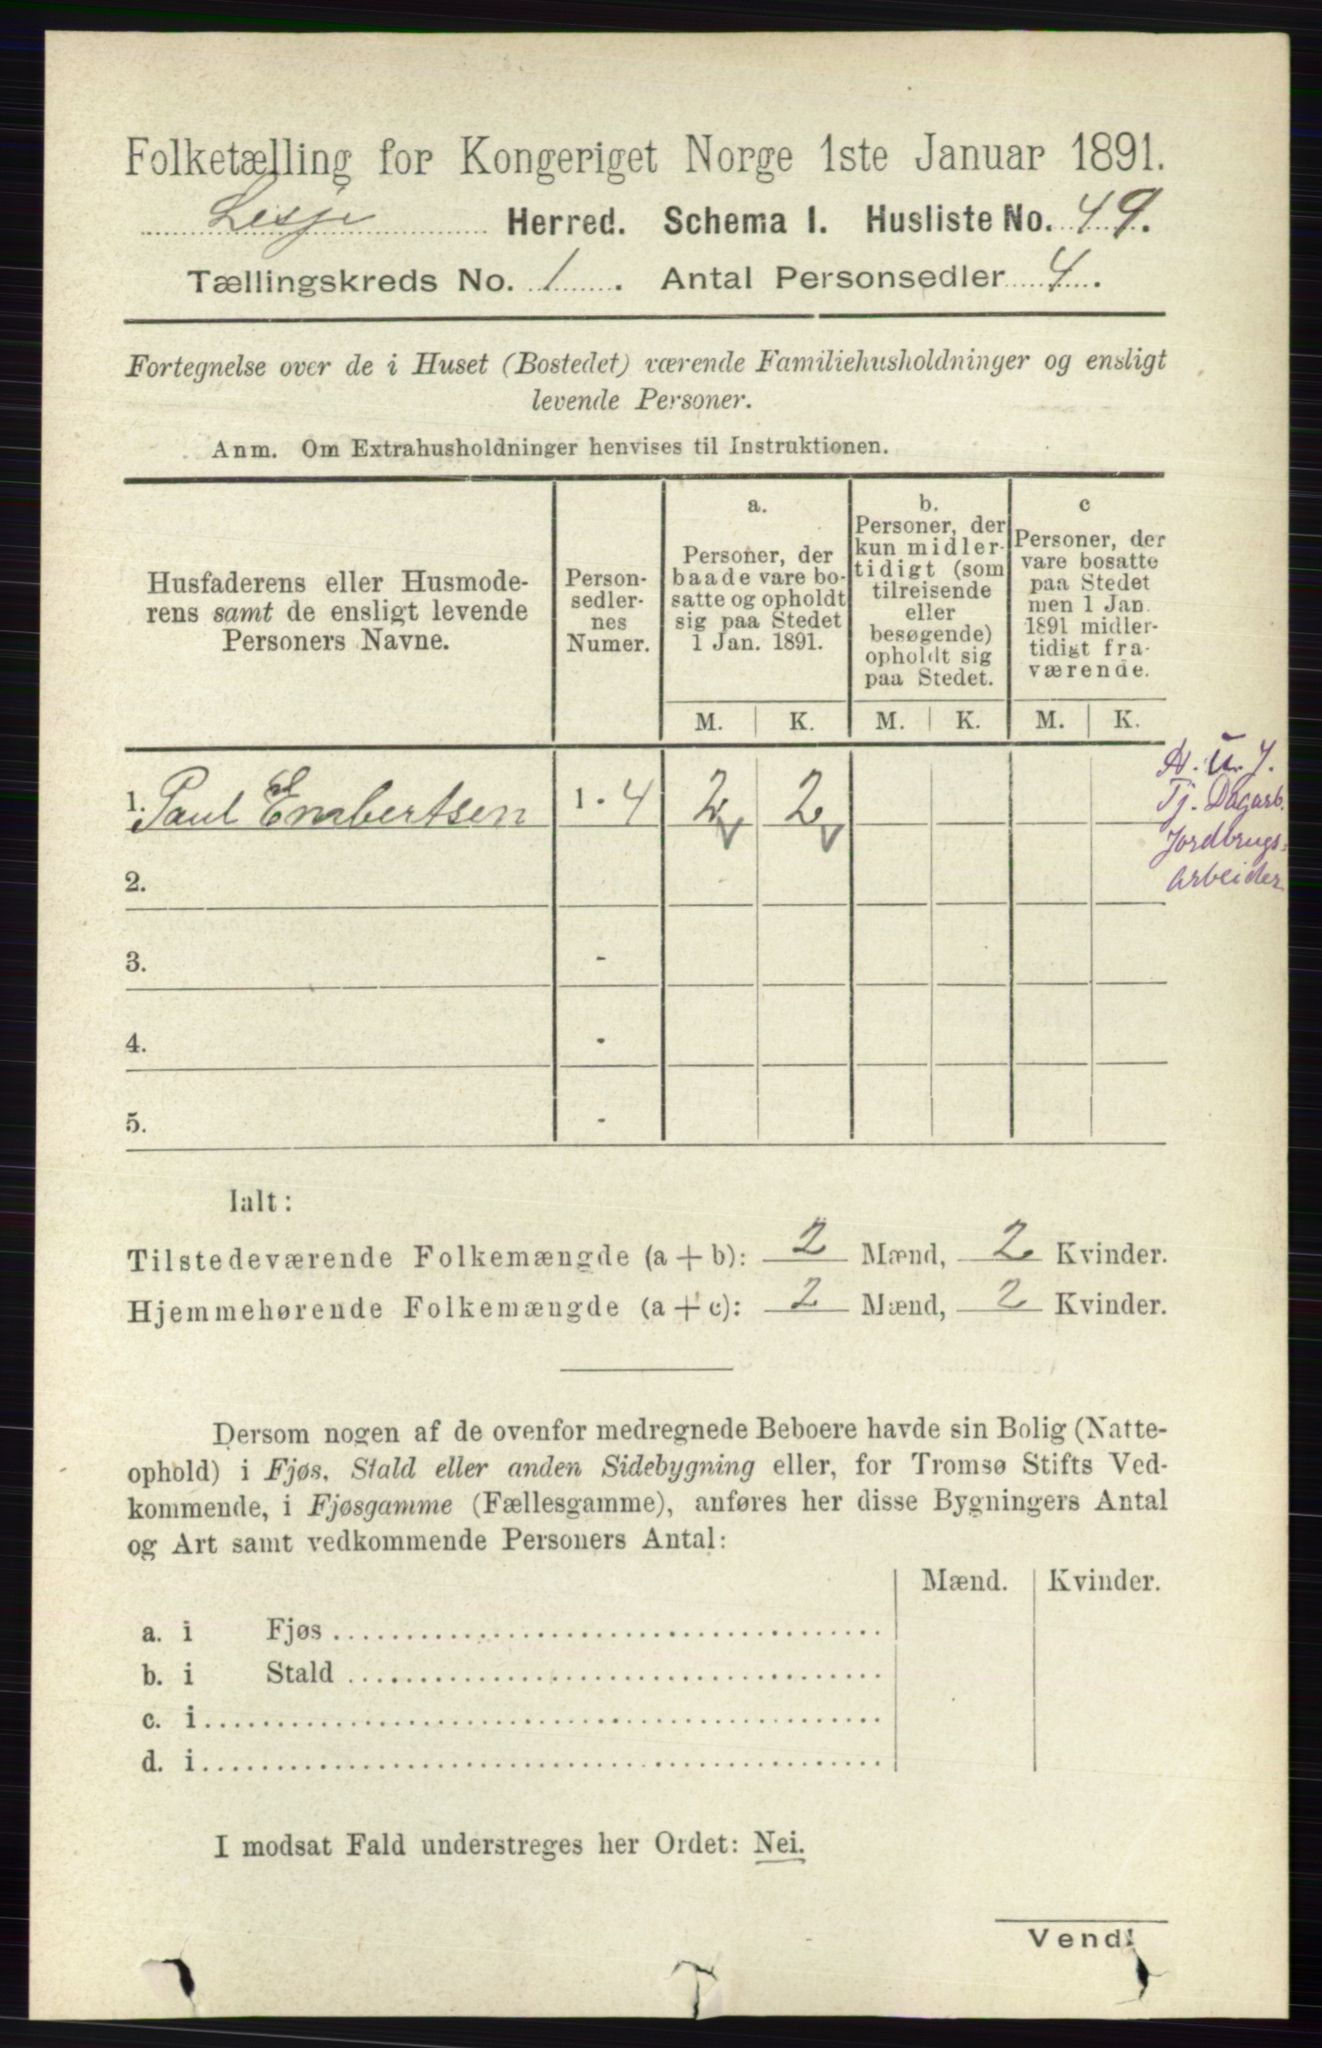 Folketælling for Kongeriget Norge 1ste Januar 1891.
Lesje Herred. Schema I. Husliste No. 49.
Tællingskreds No. 1. Antal Personsedler 4.
Fortegnelse over de i Huset (Bostedet) værende Familiehusholdninger og ensligt
levende Personer.
Anm. Om Extrahusholdninger henvises til Instruktionen.
Husfaderens eller Husmode-
rens samt de ensligt levende
Personers Navne.
Person-
sedler-
nes
Numer.
a.
Personer, der
baade vare bo-
satte og opholdt
sig paa Stedet
1 Jan. 1891.
b.
Personer, der
kun midler-
tidigt (som
tilreisende
eller
besøgende)
opholdt sig
paa Stedet.
c
Personer, der
vare bosatte
paa Stedet
men 1 Jan.
1891 midler-
tidigt fra-
værende.
M. K. M. K. M. K.
1. Paul Embertsen 1 - 4 2 2
Tj. Dagarb.
Jordbrugs-
arbeider
2.
3. -
4. -
5. -
Ialt:
Tilstedeværende Folkemængde (a + b): 2 Mænd, 2 Kvinder.
Hjemmehørende Folkemængde (a + c): 2 Mænd, 2 Kvinder.
Dersom nogen af de ovenfor medregnede Beboere havde sin Bolig (Natte-
ophold) i Fjøs, Stald eller anden Sidebygning eller, for Tromsø Stifts Ved-
kommende, i Fjøsgamme (Fællesgamme), anføres her disse Bygningers Antal
og Art samt vedkommende Personers Antal:
Mænd. Kvinder.
a. i Fjøs
b. i Stald
c. i
d. i
I modsat Fald understreges her Ordet: Nei.
Vend!